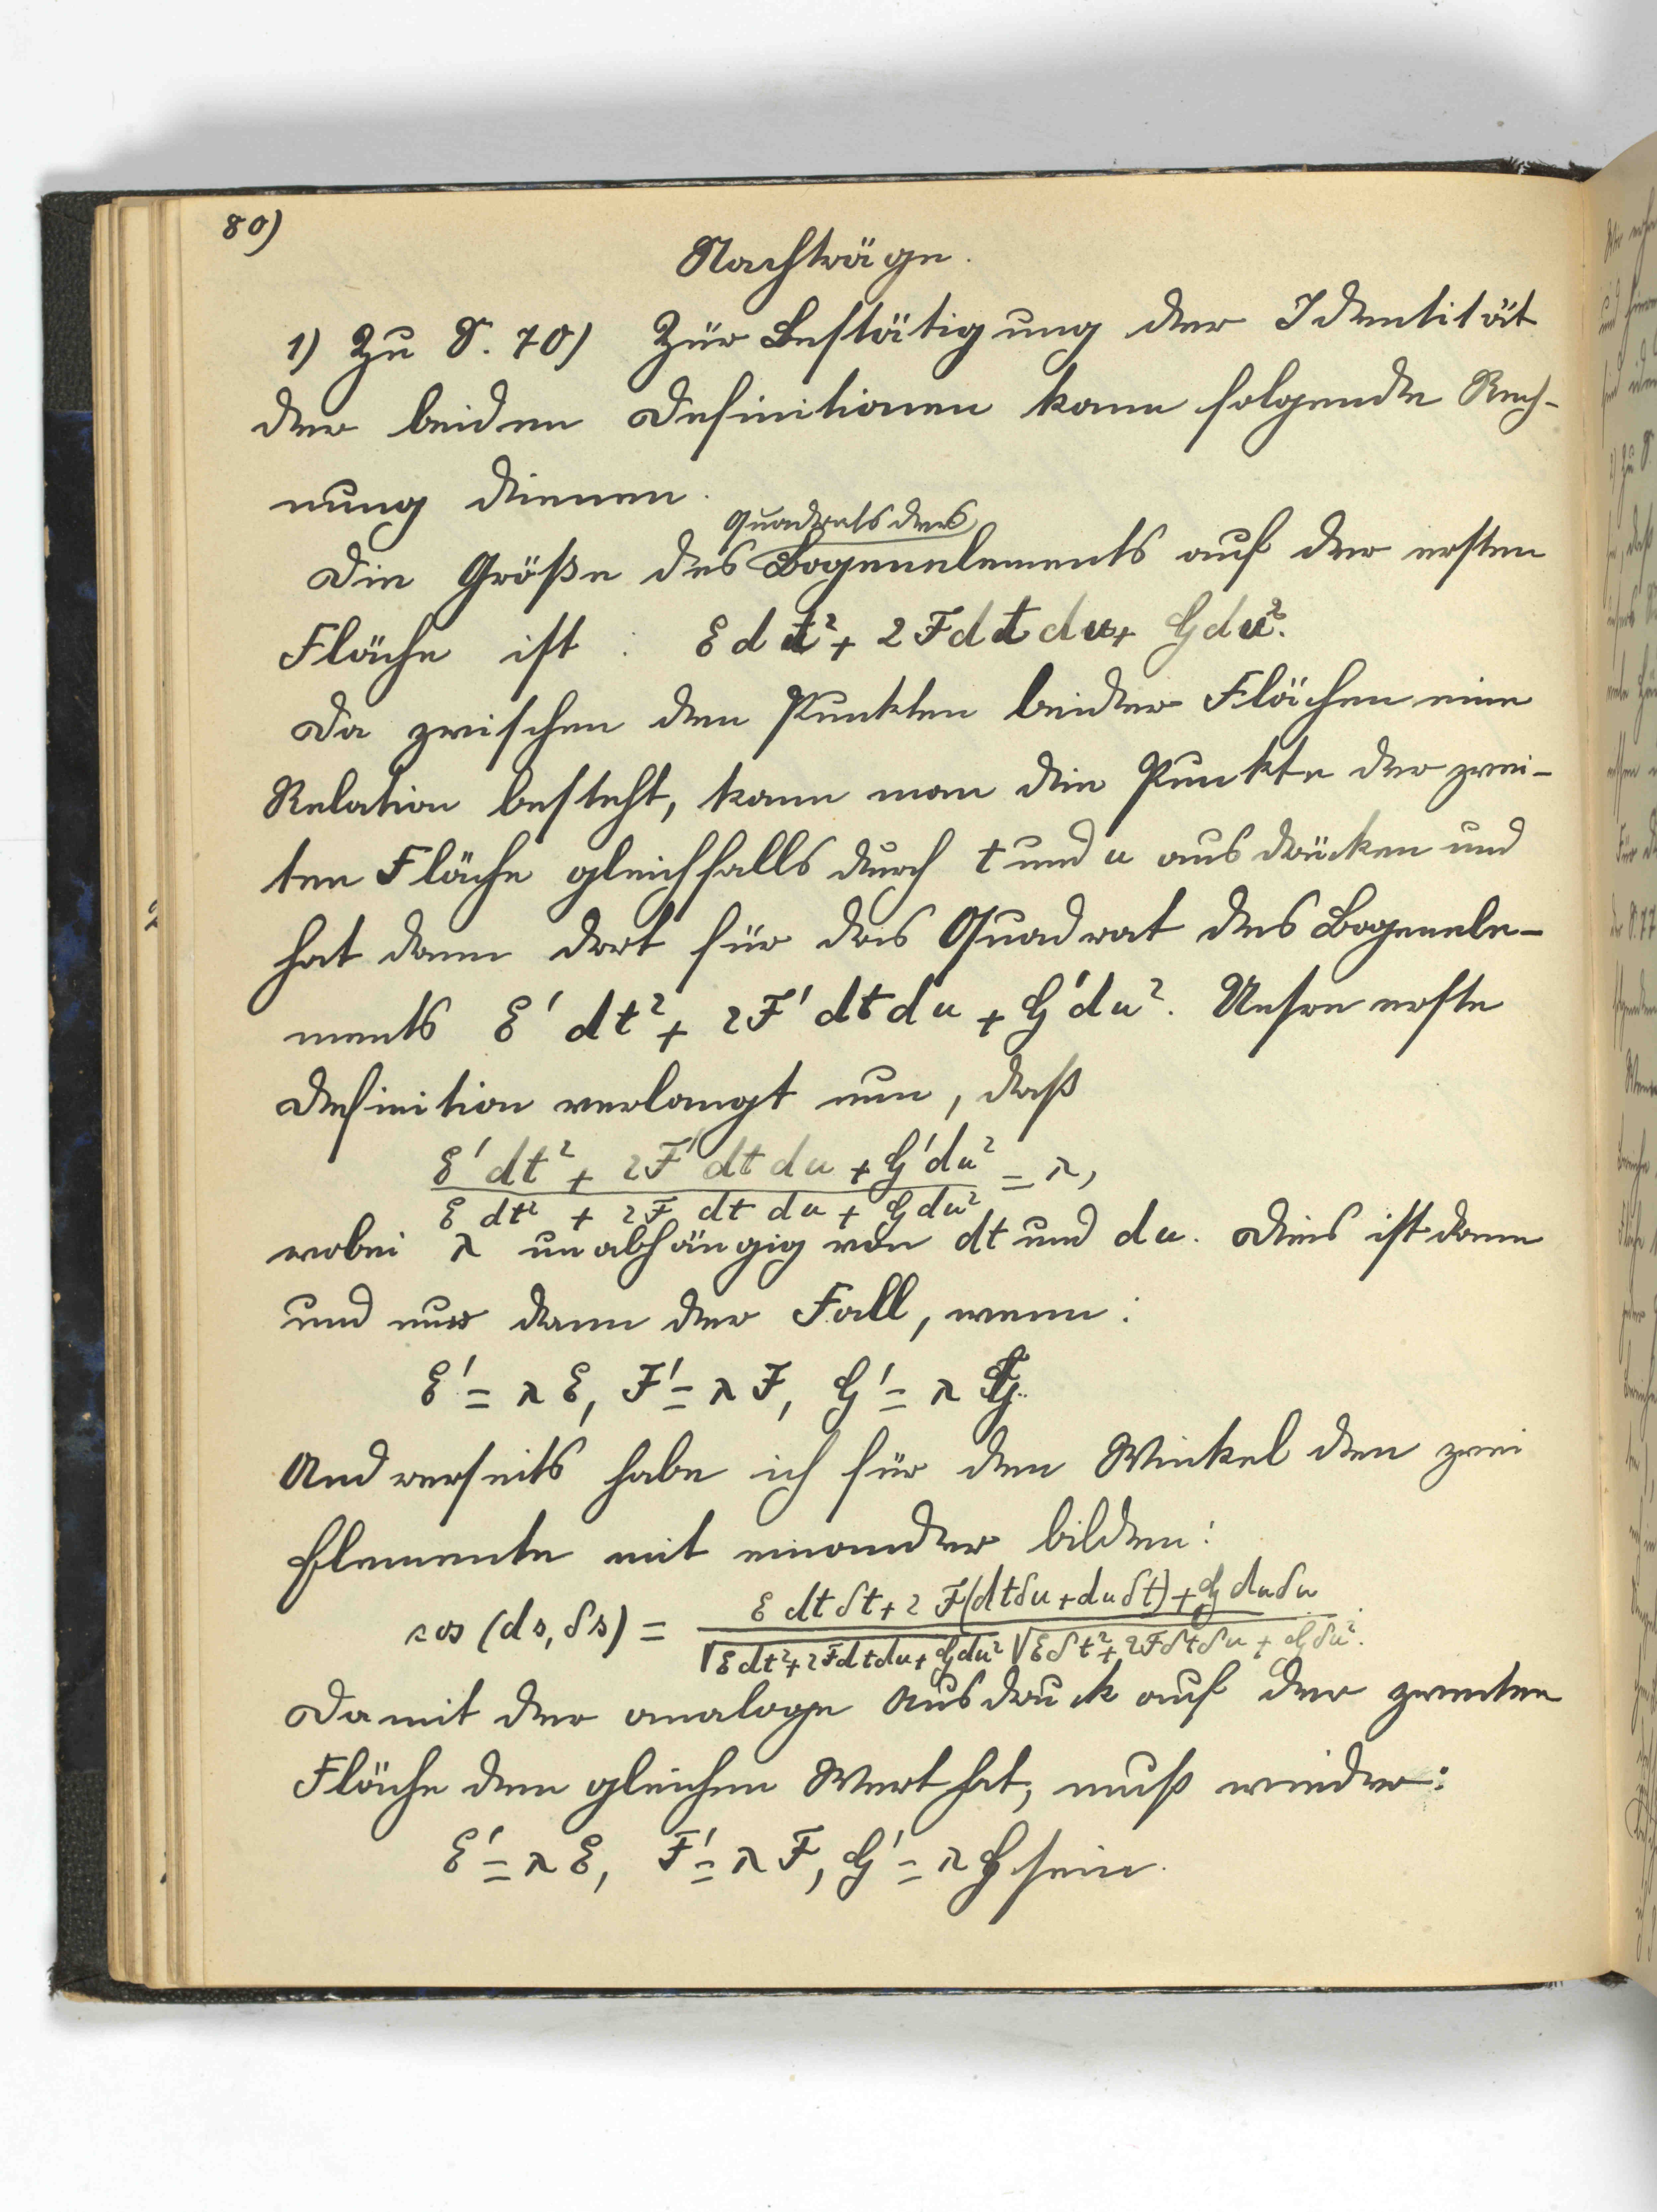 80)
Nachträge.
1) Zu S. 70) Zur Bestätigung der Identität
der beiden Definitionen kann folgende Rech-
nung dienen.
Quadrats des
Die Größe des Bogenelements auf der ersten
Fläche ist : E dt² + 2 F dt du + G du².
Da zwischen den Punkten beider Flächen eine
Relation besteht, kann man die Punkte der zwei-
ten Fläche gleichfalls durch t und u ausdrücken und
hat dann dort für das Quadrat des Bogenele-
ments E' dt² + 2F' dt du + G' du². Unsre erste
Definition verlangt nun, daß
E' dt² + 2F' dt du + G' du² = λ,
E dt² + 2F dt du + G du²
wobei λ unabhängig von dt und du. Dies ist dann
und nur dann der Fall, wenn:
E' = λ E, F' = λ F, G' = λ G.
Andrerseits habe ich für den Winkel den zwei
Elemente mit einander bilden:
cos (ds, δs) = E dt δt + 2 F(dt δu + du δt) + G du δu
√E dt² + 2F dt du + G du² √E δt² + 2F δt δu + G δu².
Damit der analoge Ausdruck auf der zweiten
Fläche den gleichen Wert hat, muß wieder:
E' = λ E, F' = λ F, G' = λ G sein.